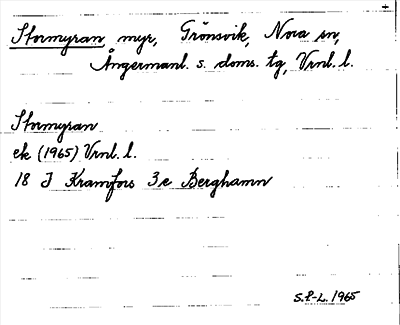 Stormyran, myr, Grönsvik, Nora sn,
Ångermanl. s. doms. tg, Vrnl. l.
Stormyran
ek (1965) Vrnl. l.
18 I Kramfors 3 e Berghamn
S.F-L. 1965